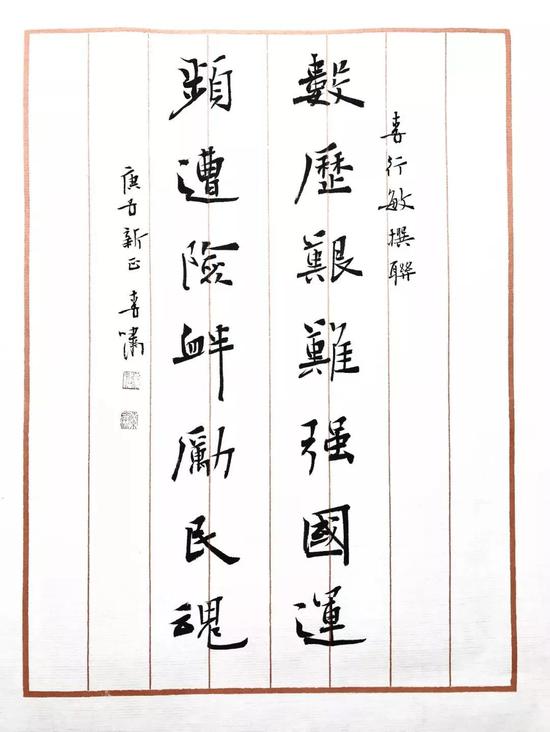 行敏撰聯
數歷艱難强國運
頻遭險衅勵民魂
庚子新正 嘯